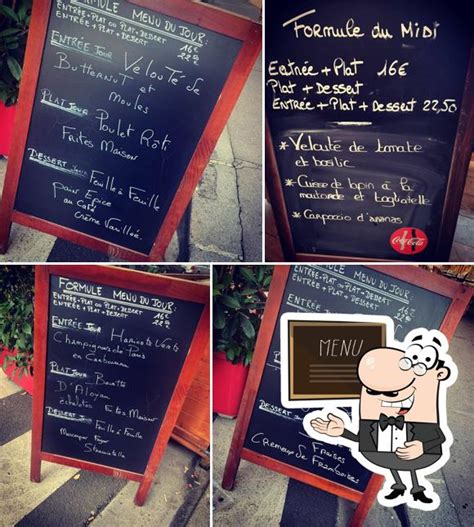 FORMULE MENU DU JOUR:
ENTRÉE + PLAT OU PLAT + DESSERT 16€
ENTRÉE + PLAT + DESSERT 22
ENTRÉE JOUR
VELOUTÉ DE
BUTTERNUT et
MOULES
PLAT JOUR
Poulet Roti
Frites Maison
DESSERT JOUR
Feuille à Feuille
pain Epice
au Café
Crème Vanillée
Formule du Midi
Entrée + Plat 16€
Plat + Dessert
Entrée + Plat + Dessert 22,50
* Velouté de tomate
et basilic
* Cuisse de lapin à la
moutarde et tagliatelle
* Carpaccio d'ananas
Coca-Cola
FORMULE MENU DU JOUR:
ENTRÉE + PLAT OU PLAT + DESSERT
ENTRÉE + PLAT + DESSERT
16€
22
ENTRÉE JOUR
Haricots Verts
Champignons de Paris
PLAT JOUR
D'Aloyau
échalotes
Frites Maison
DESSERT
Feuille à Feuille
FORMULE MENU DU JOUR:
ENTRÉE + PLAT OU PLAT + DESSERT
ENTRÉE + PLAT + DESSERT
MENU
Fraises
Cremeux de Framboises